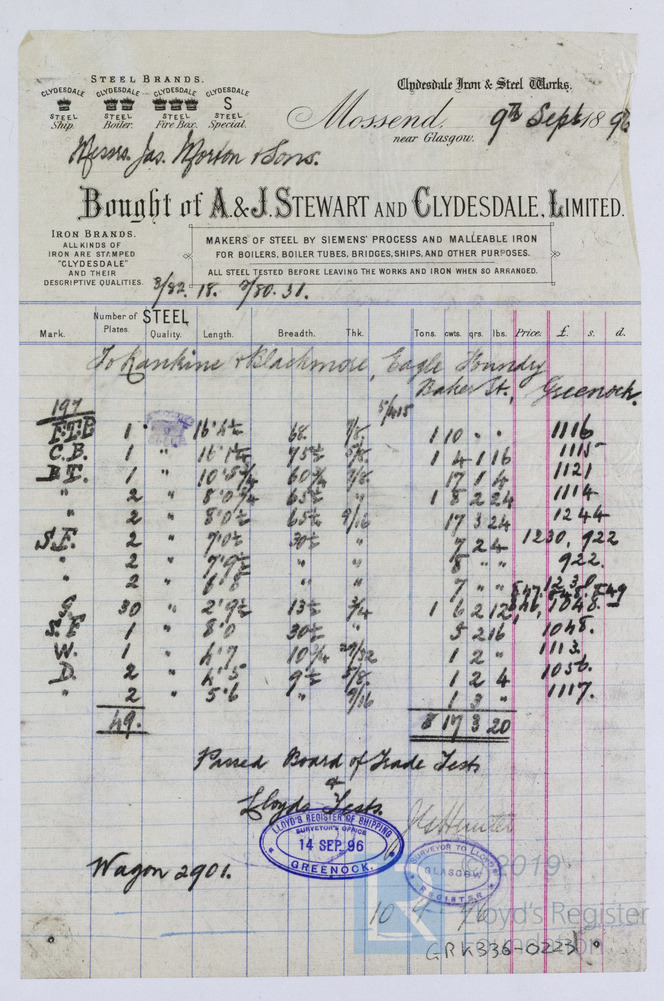 STEEL BRANDS.
CLYDESDALE CLYDESDALE CLYDESDALE CLYDESDALE
S
STEEL STEEL STEEL STEEL
Ship. Boiler. Fire Box. Special.
Clydesdale Iron & Steel Works.
Mossend, 9th Sept 1896
near Glasgow.
Messrs. Jas. Morton & Sons.
Bought of A. & J. STEWART AND CLYDESDALE, LIMITED.
IRON BRANDS.
ALL KINDS OF
IRON ARE STAMPED
"CLYDESDALE"
AND THEIR
DESCRIPTIVE QUALITIES.
MAKERS OF STEEL BY SIEMENS' PROCESS AND MALLEABLE IRON
FOR BOILERS, BOILER TUBES, BRIDGES, SHIPS, AND OTHER PURPOSES.
ALL STEEL TESTED BEFORE LEAVING THE WORKS AND IRON WHEN SO ARRANGED.
3/82. 18. 2/80. 31.
Mark. Number of Plates. STEEL Quality. Length. Breadth. Thk. Tons. cwts. qrs. lbs. Price. £. s. d.
To Rankine & Blackmore, Eagle Foundry
Baker St., Greenock.
5/415
197
F.T.B 1 16'4½ 68 7/8 1 10 " " 1116
C.B. 1 " 16'1½ 75½ 5/8 1 4 1 16 1115
B.T. 1 " 10'5¾ 60¾ 7/8 17 1 4 1121
" 2 " 8'0¾ 65½ " 1 8 2 24 1114
" 2 " 8'0½ 65½ 9/16 17 3 24 1244
S.F. 2 " 7'0½ 30½ " 7 2 4 1230, 922
" 2 " 7'9½ " " 8 " " 922.
" 2 " 6'8 " " 7 " " 1230
G. 30 " 2'9½ 13½ 3/4 1 6 2 12 847, 848, 849
846, 1048.
S.F 1 " 8'0 30½ " 5 2 16 1048.
W. 1 " 4'7 10¾ 29/32 1 2 " 1113.
D. 2 " 4'5 9½ 5/8 1 2 4 1056.
" 2 " 5'6 " 9/16 1 3 " 1117.
49. 8 17 3 20
Passed Board of Trade Tests
&
Lloyds Tests.
LLOYD'S REGISTER OF SHIPPING
SURVEYOR'S OFFICE
14 SEP. 96
GREENOCK.
SURVEYOR TO LLOYDS
GLASGOW
REGISTER
Wagon 2901.
© 2019
Lloyd's Register
Foundation
10 9 96
GRK336-0223